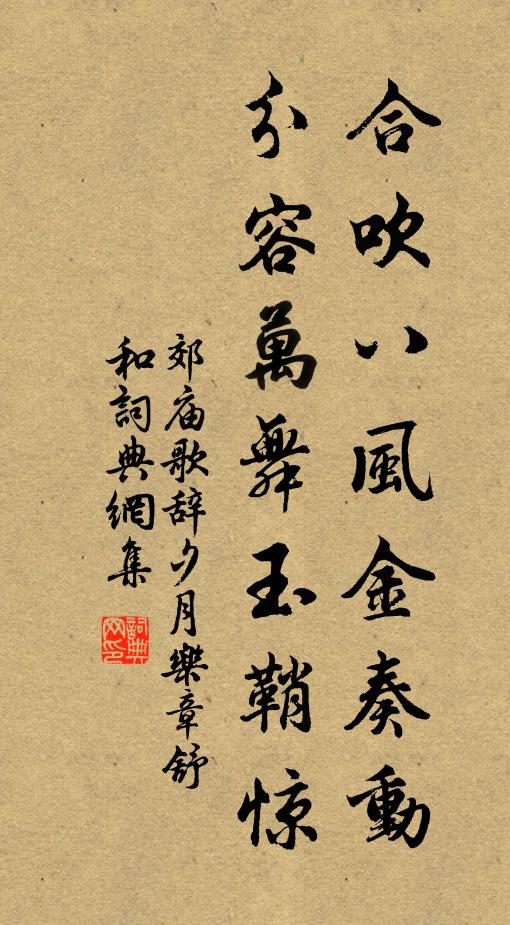 合吹八風金奏動
分容萬舞玉鞘惊
郊庙歌辞夕月樂章舒
和詞典網集
詞典网印